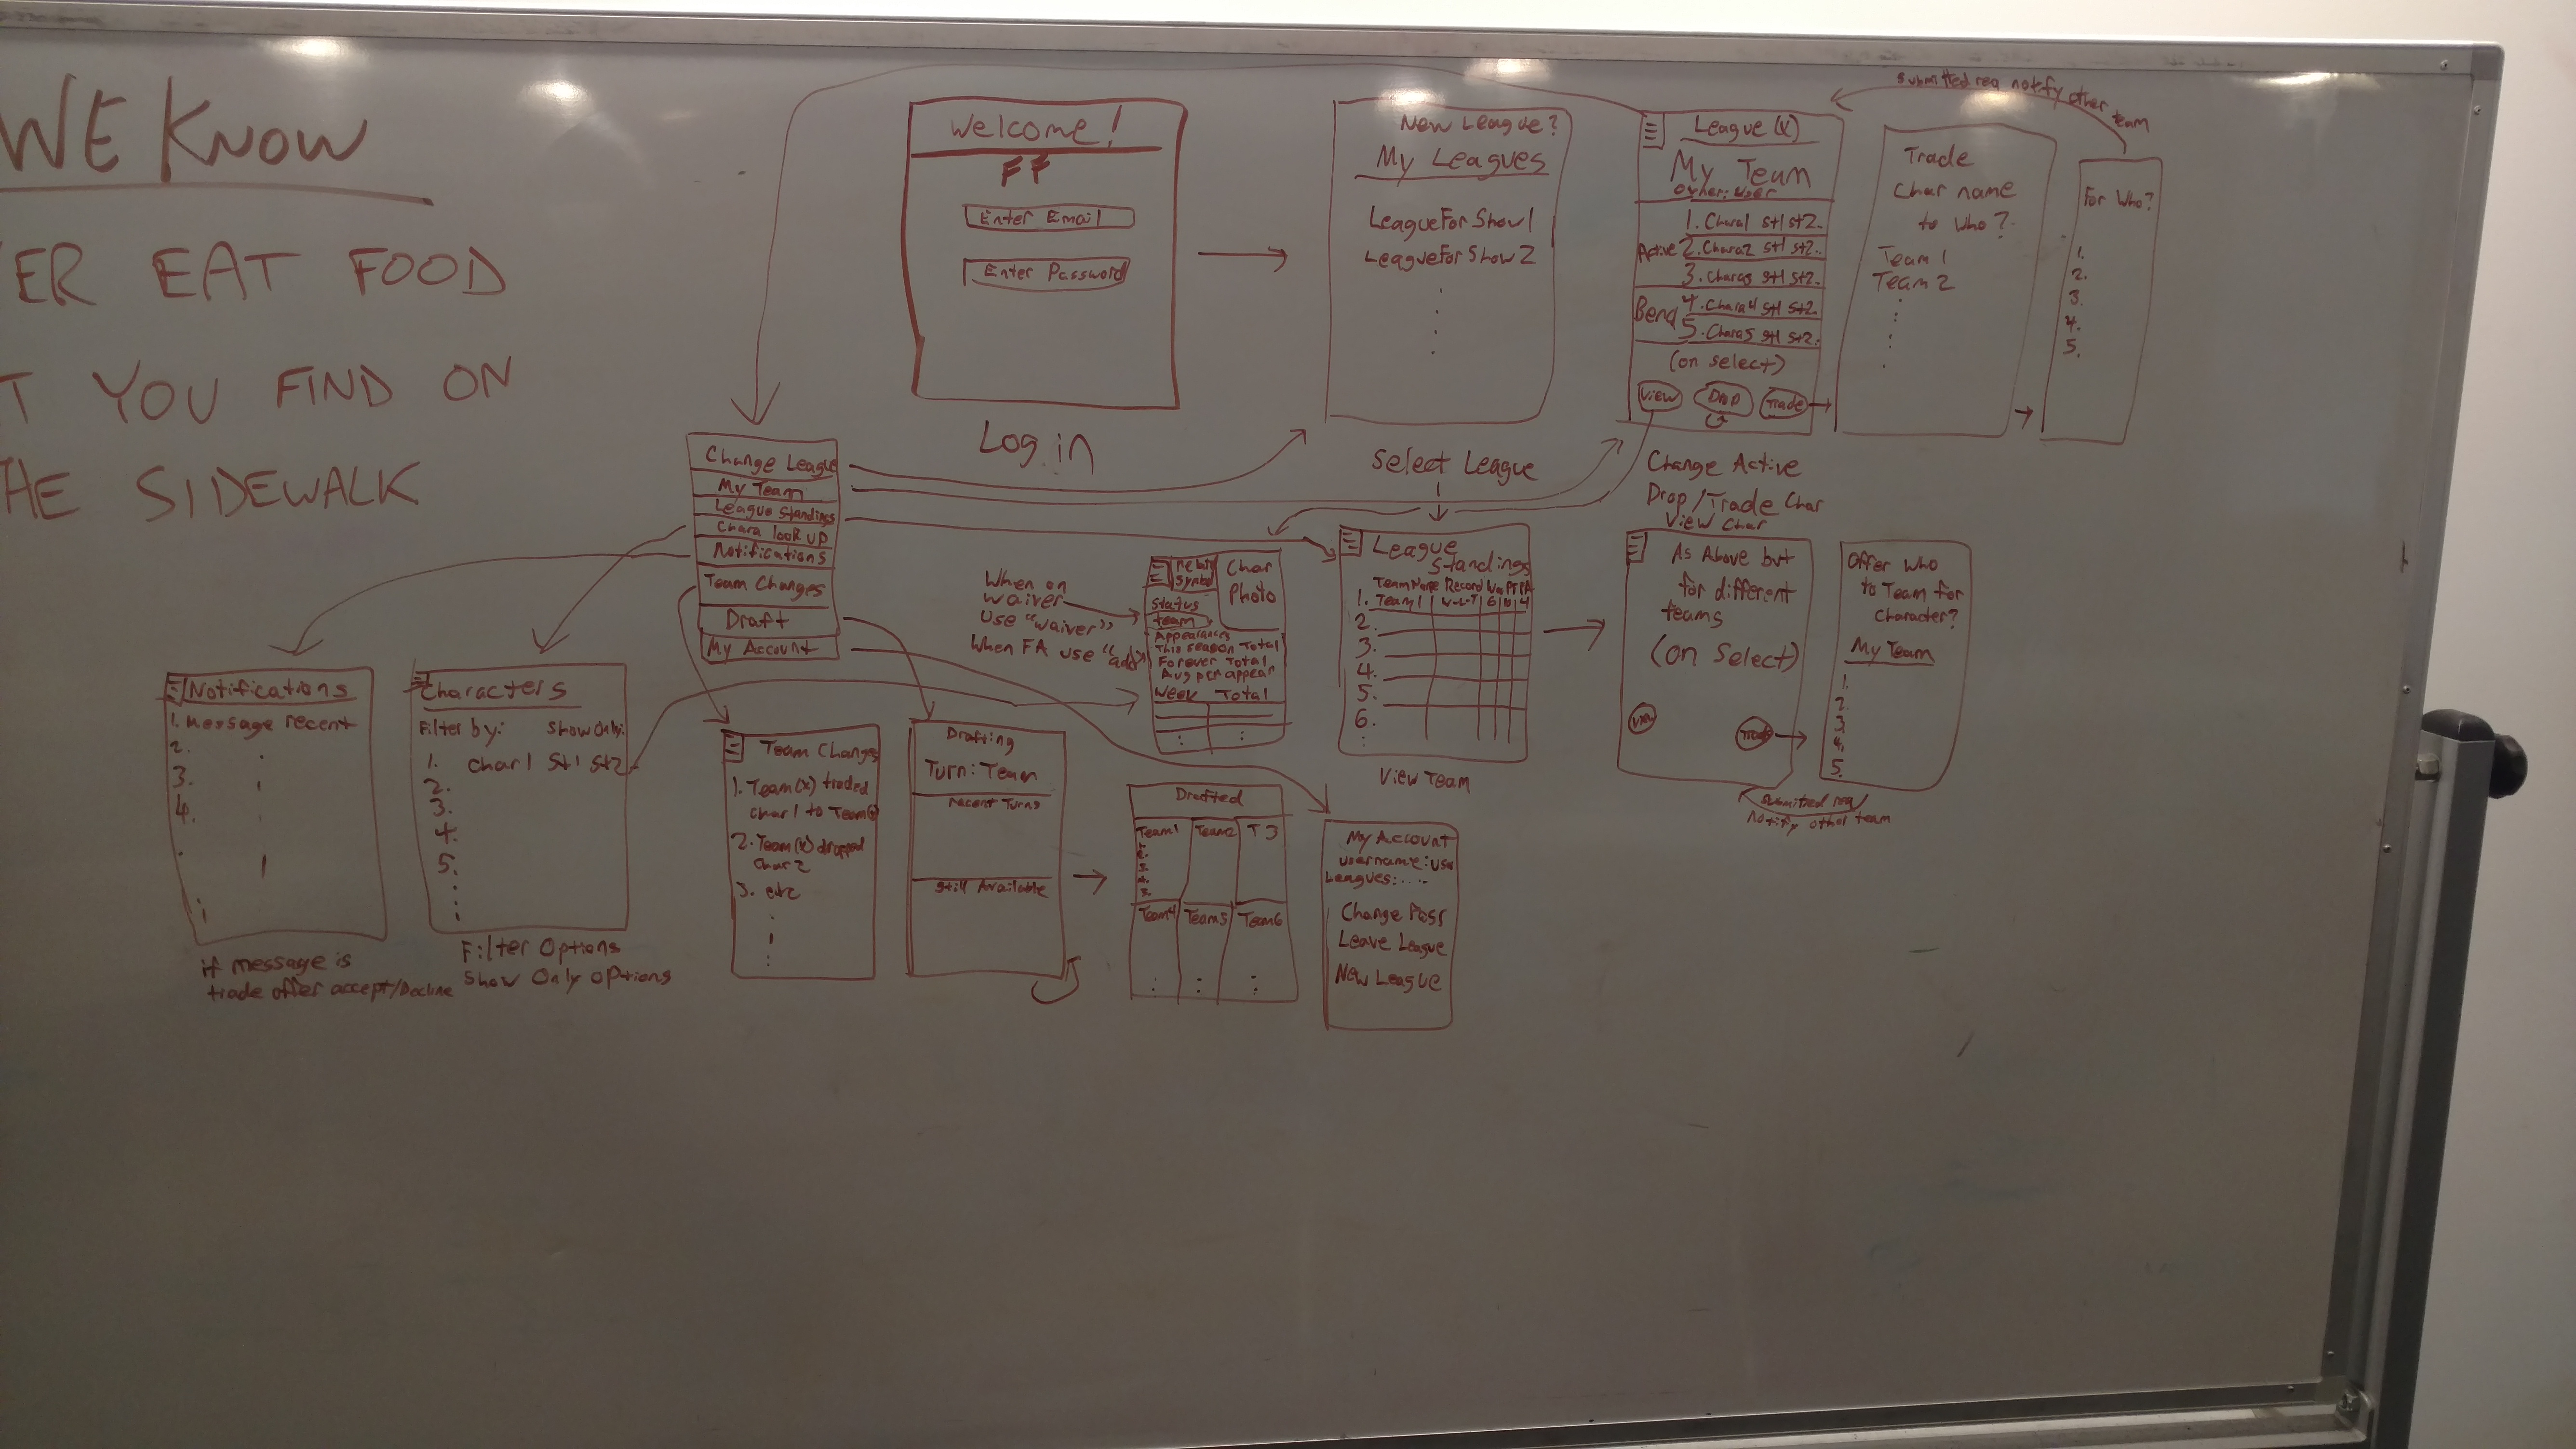 WE KNOW
ER EAT FOOD
T YOU FIND ON
HE SIDEWALK
Welcome!
FF
Enter Email
Enter Password
Log in
New League?
My Leagues
LeagueForShow1
LeagueForShow2
Select League
League (X)
My Team
Owner: User
1. Chara1 st1 st2..
Active 2. Chara2 st1 st2..
3. Chara3 st1 st2..
Benc 4. Chara4 st1 st2..
5. Chara5 st1 st2..
(on select)
View Drop Trade
Change Active
Drop/Trade Char
View Char
submitted req notify other team
Trade
Char name
to who?
Team 1
Team 2
For Who?
1.
2.
3.
4.
5.
Change League
My Team
League Standings
Chara look up
Notifications
Team Changes
Draft
My Account
When on
waiver
use "waiver"
When FA use "add"
symbol
Char
Photo
Status
team
Appearances
This season Total
Forever Total
Avg per appear
Week Total
League
Standings
Team Name Record
1. Team 1 W-L-T 6 10 4
2.
3.
4.
5.
6.
View Team
As Above but
for different
teams
(on select)
View
Trade
Offer who
to Team for
Character?
My Team
1.
2.
3.
4.
5.
submitted req
notify other team
Notifications
1. Message recent
2.
3.
4.
if message is
trade offer accept/Decline
Characters
Filter by: Show Only:
1. Char1 st1 st2
2.
3.
4.
5.
Filter Options
Show Only Options
Team Changes
1. Team(x) traded
char1 to Team
2. Team(x) dropped
char2
3. etc
Drafting
Turn: Team
recent Turns
Still Available
Drafted
Team1 Team2 T3
Team4 Team5 Team6
My Account
username: use
Leagues: ....
Change Pass
Leave League
New League